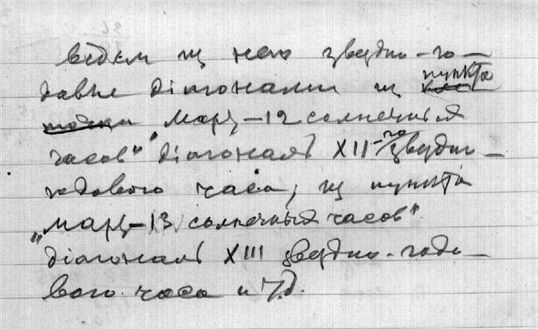 ведем из него звездно-го-
давые діагонали из пункта
точки „Март-12 солнечных
часов" діагональ XII-го звездно-
годового часа, из пункта
„Март-13 солнечных часов"
діагональ XIII звездно-годо-
вого часа и т.д.